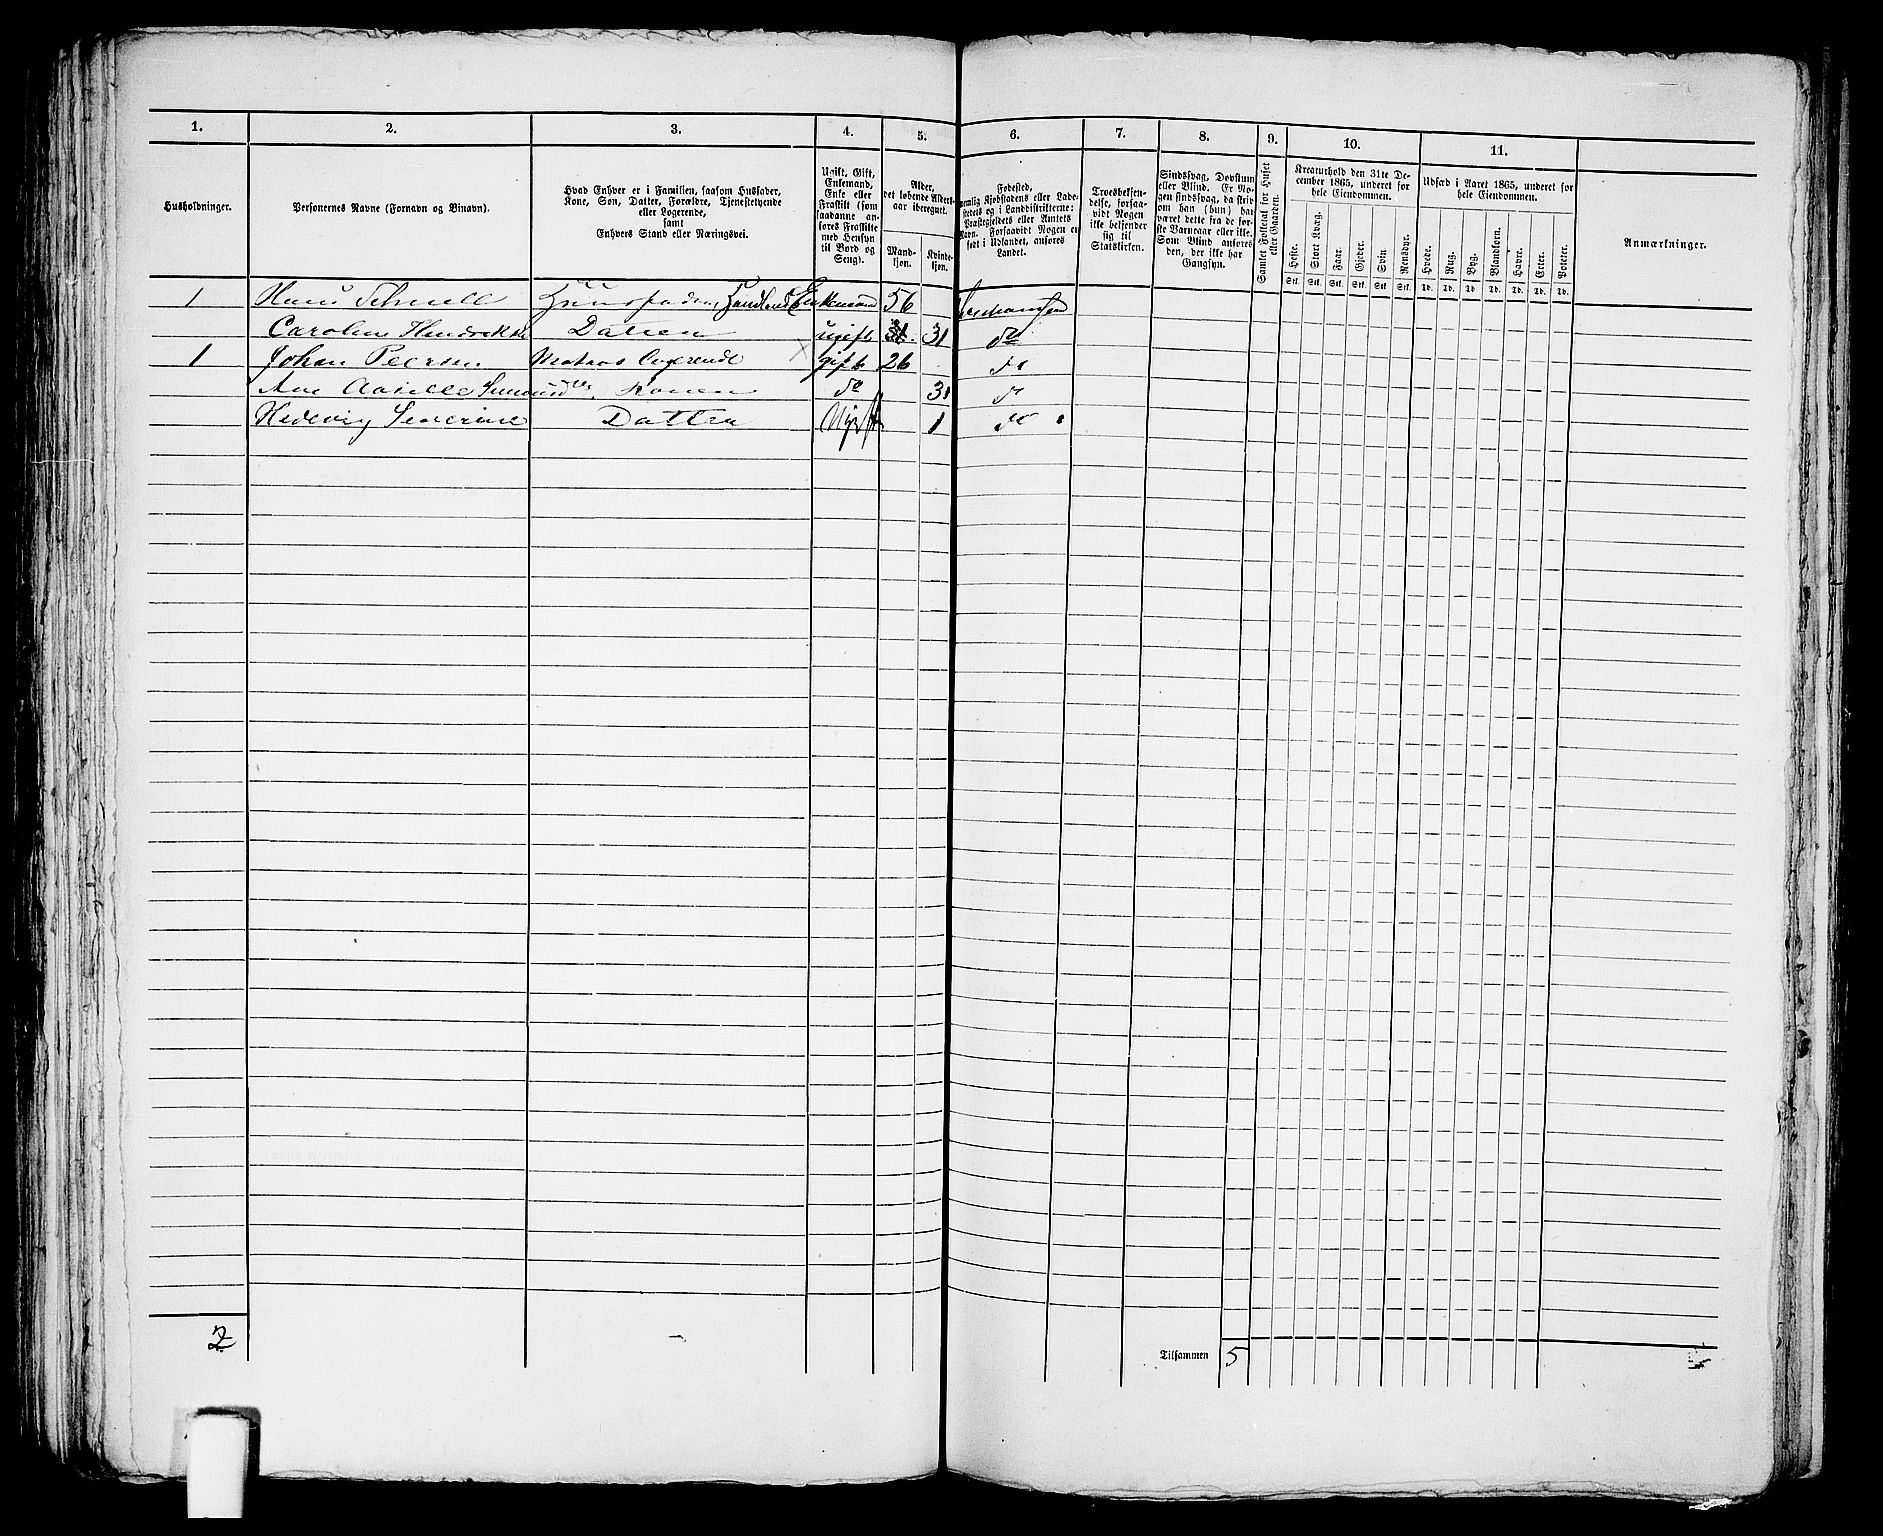 1. 2. 3. 4. 5. 6. 7. 8. 9. 10. 11.
Husholdninger.
Personernes Navne (Fornavn og Binavn).
Hvad Enhver er i Familien, saasom Husfader,
Kone, Søn, Datter, Forældre, Tjenestetyende
eller Logerende,
samt
Enhvers Stand eller Næringsvei.
Ugift, Gift,
Enkemand,
Enke eller
Fraskilt (som
saadanne an-
føres Fraskilte
med Hensyn
til Bord og
Seng).
Alder,
det løbende Alders-
aar iberegnet.
Mand-
kjøn.
Kvinde-
kjøn.
Fødested,
nemlig Kjøbstadens eller Lade-
stedets og i Landdistrikterne:
Præstegjeldets eller Annekets
Navn. Forsaavidt Nogen er
født i Udlandet, anføres
Landet.
Troesbekjen-
delse, forsaa-
vidt Nogen
ikke bekjender
sig til
Statskirken.
Sindssvag, Døvstum
eller Blind. Er No-
gen sindssvag, da skriv
om han (hun) har
været dette fra de før-
ste Barneaar eller ikke.
Som Blind anføres
den, der ikke har
Gangsyn.
Samlet Folketal for Huset
eller Gaarden.
Kreaturhold den 31te De-
cember 1865, underet for
hele Eiendommen.
Heste. Stort Kvæg. Faar. Gjeder. Svin. Rensdyr.
Stk. Stk. Stk. Stk. Stk. Stk.
Udsæd i Aaret 1865, underet for
hele Eiendommen.
Hvede. Rug. Byg. Blandkorn. Havre. Erter. Poteter.
Td. Td. Td. Td. Td. Td. Td.
Anmærkninger.
1 Hans Schnell Huusfader, Enkemand 56
Caroline Hendrikke Datter ugift 31 do
1 Johan Peersen Matros Logerende gift 26 do
Ane Konen do 31 do
Hedevig Severine Datter Ugift 1 do
2
Tilsammen 5